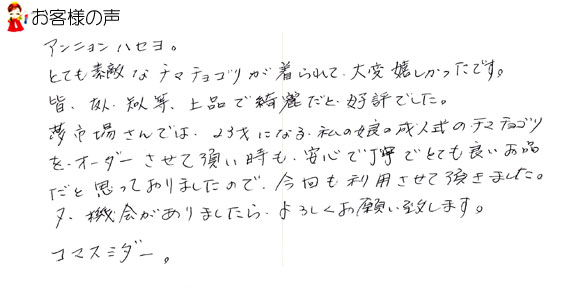 お客様の声
アンニョンハセヨ。
とても素敵なチマチョゴリが着られて、大変嬉しかったです。
皆、友人、知人等、上品で綺麗だと、好評でした。
夢市場さんでは、23才になる、私の娘の成人式のチマチョゴリ
を、オーダーさせて頂い時も、安心で丁寧でとても良いお品
だと思っておりましたので、今回も利用させて頂きました。
又、機会がありましたら、よろしくお願い致します。
コマスミダー。